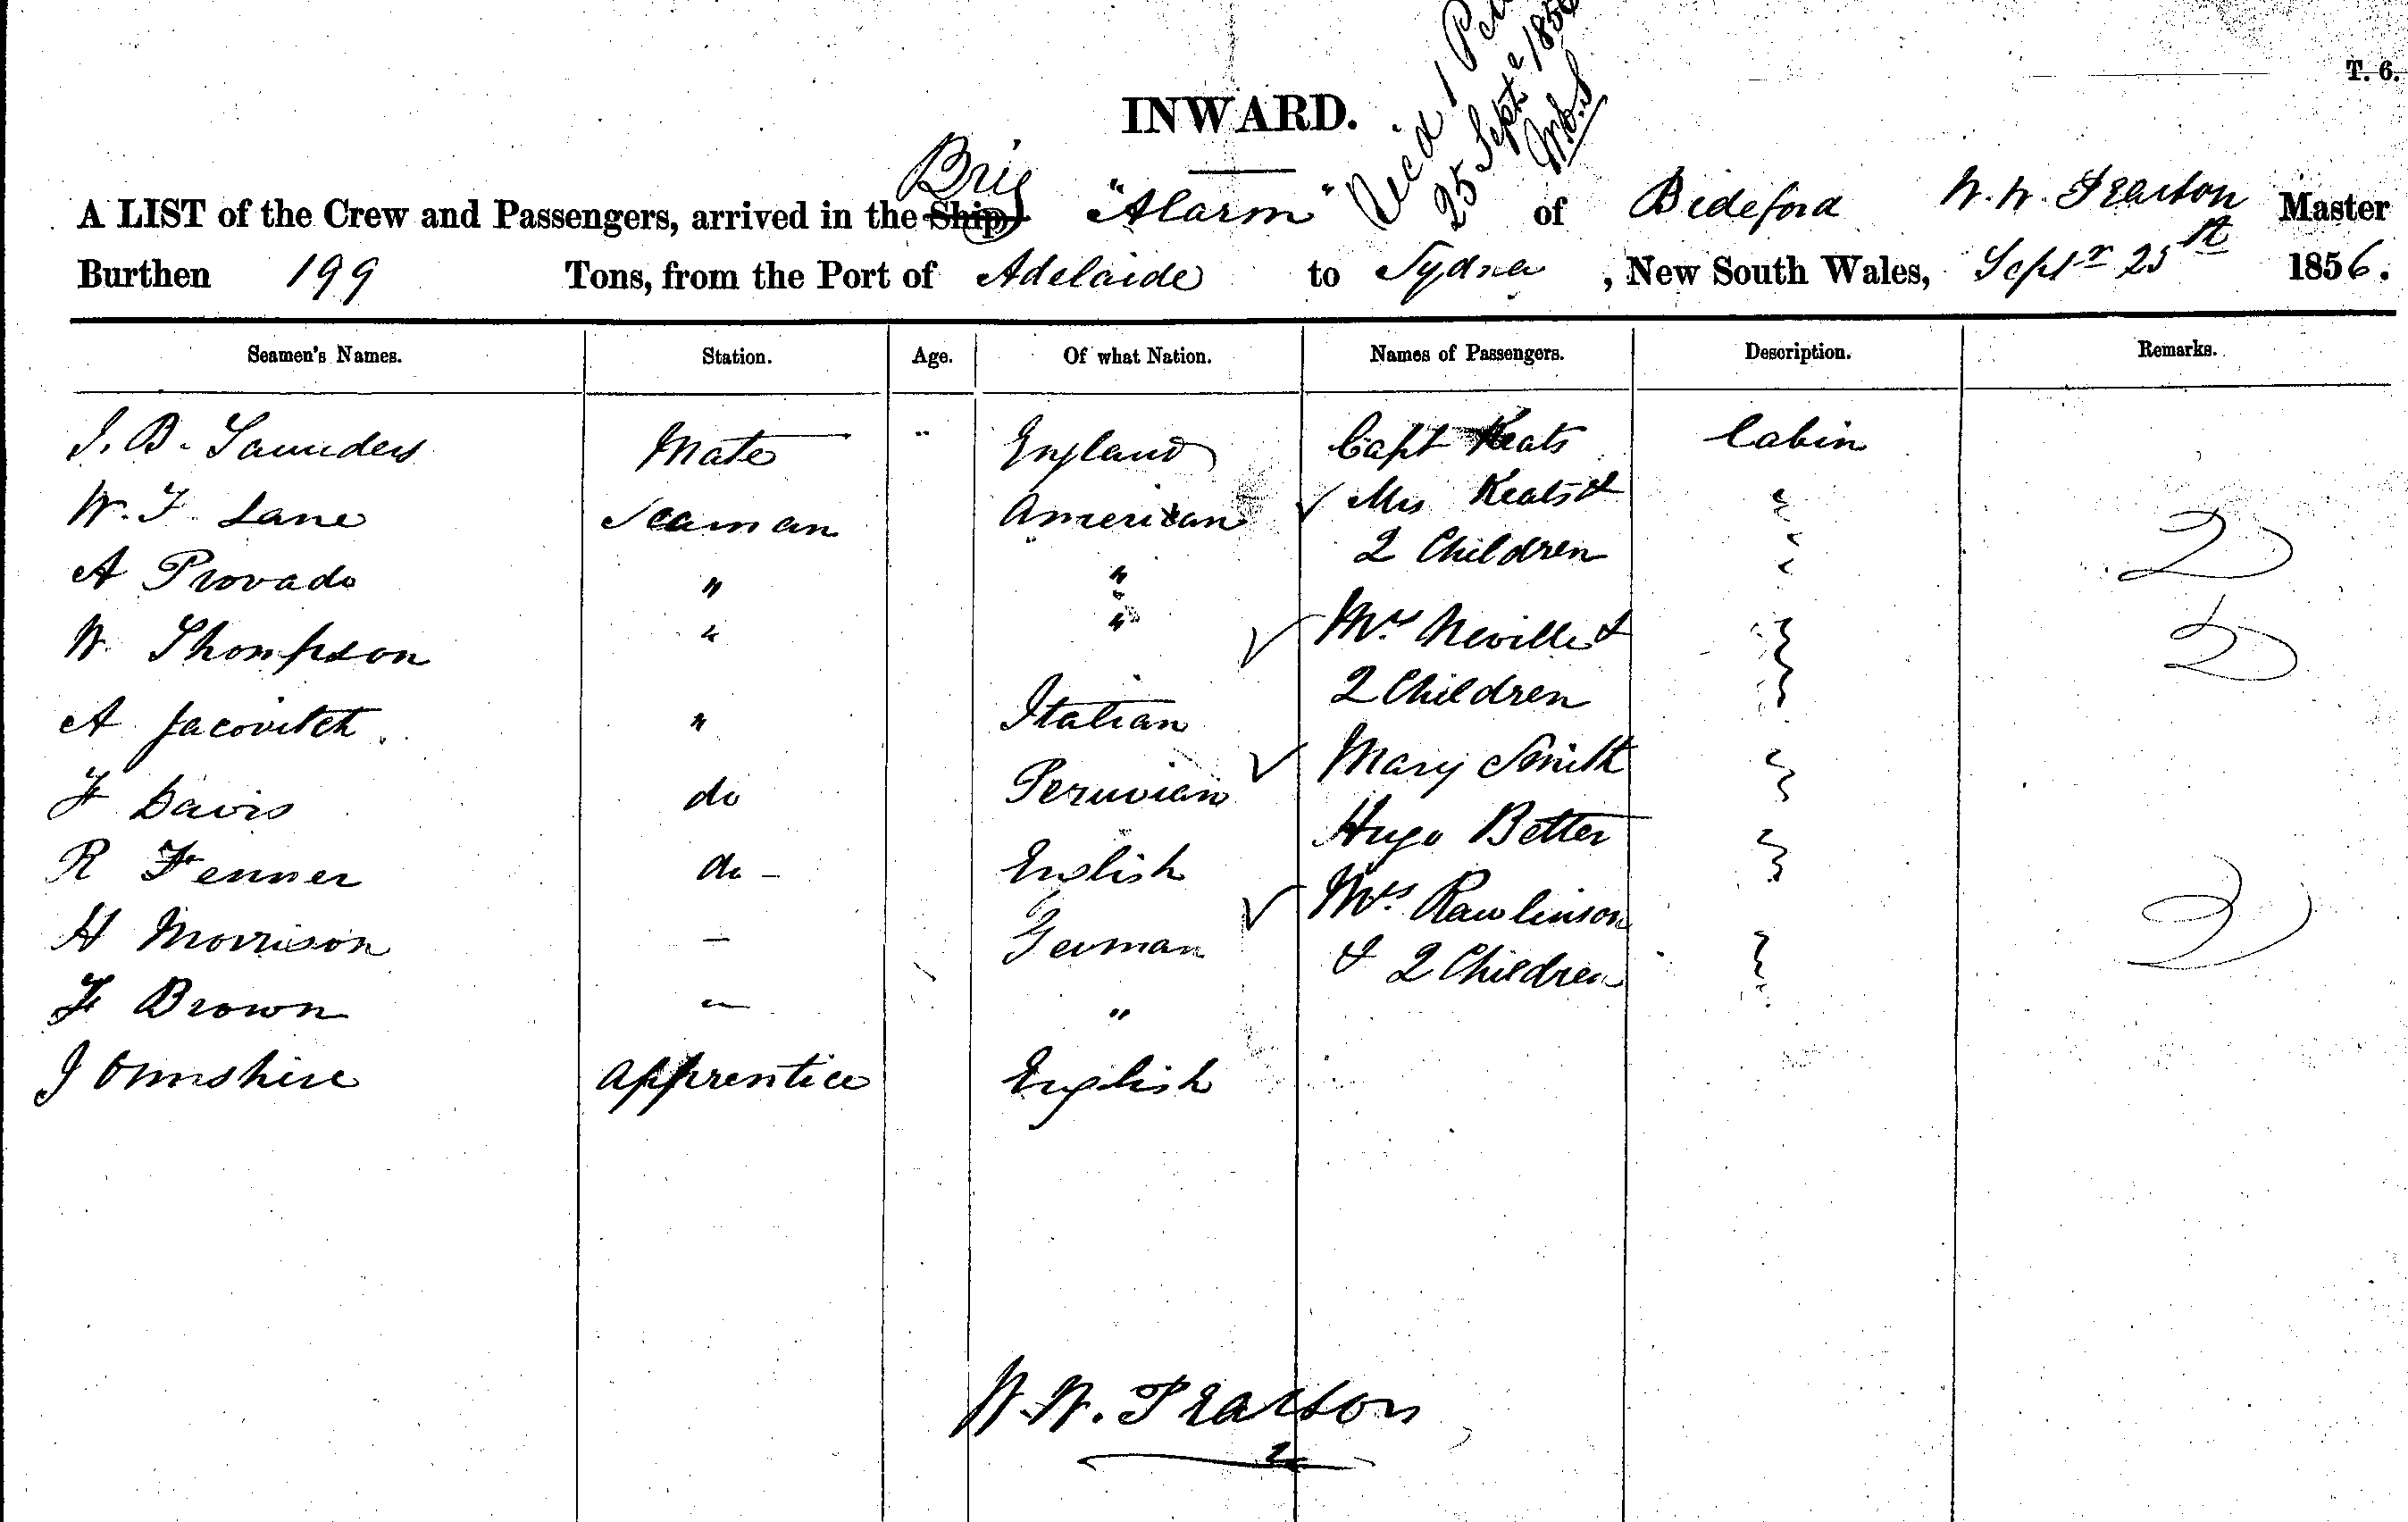 T. 6.
INWARD.
Rec'd 1
25 Sept 1856
Brig
A LIST of the Crew and Passengers, arrived in the Ship "Alarm" of Bideford W. W. Master
Burthen 199 Tons, from the Port of Adelaide to Sydney, New South Wales, Septr 25 st 1856.
Seamen's Names. Station. Age. Of what Nation. Names of Passengers. Description. Remarks.
J. B. Saunders Mate " England Capt Keats Cabin
W. F. Lane Seaman American ✓ Mrs Keats &
2 Children 2
A Provado " "
W. Thompson " " ✓ Mrs Neville & 2
2 Children
A Jacovitch " Italian
✓ Mary Smith
F Davis do Peruvian
Hugo Better
R Fenner do - English
✓ Mrs Rawlinson 2
H Morrison — German
& 2 Children
F Brown — "
J Apprentice English
W. W.